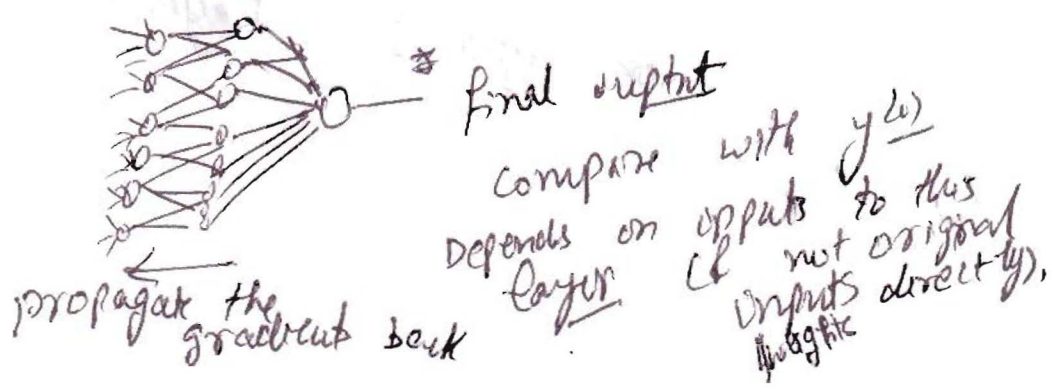 final output
compare with y(i)
Depends on inputs to this
layer (& not original
inputs directly).
propagate the
gradients back